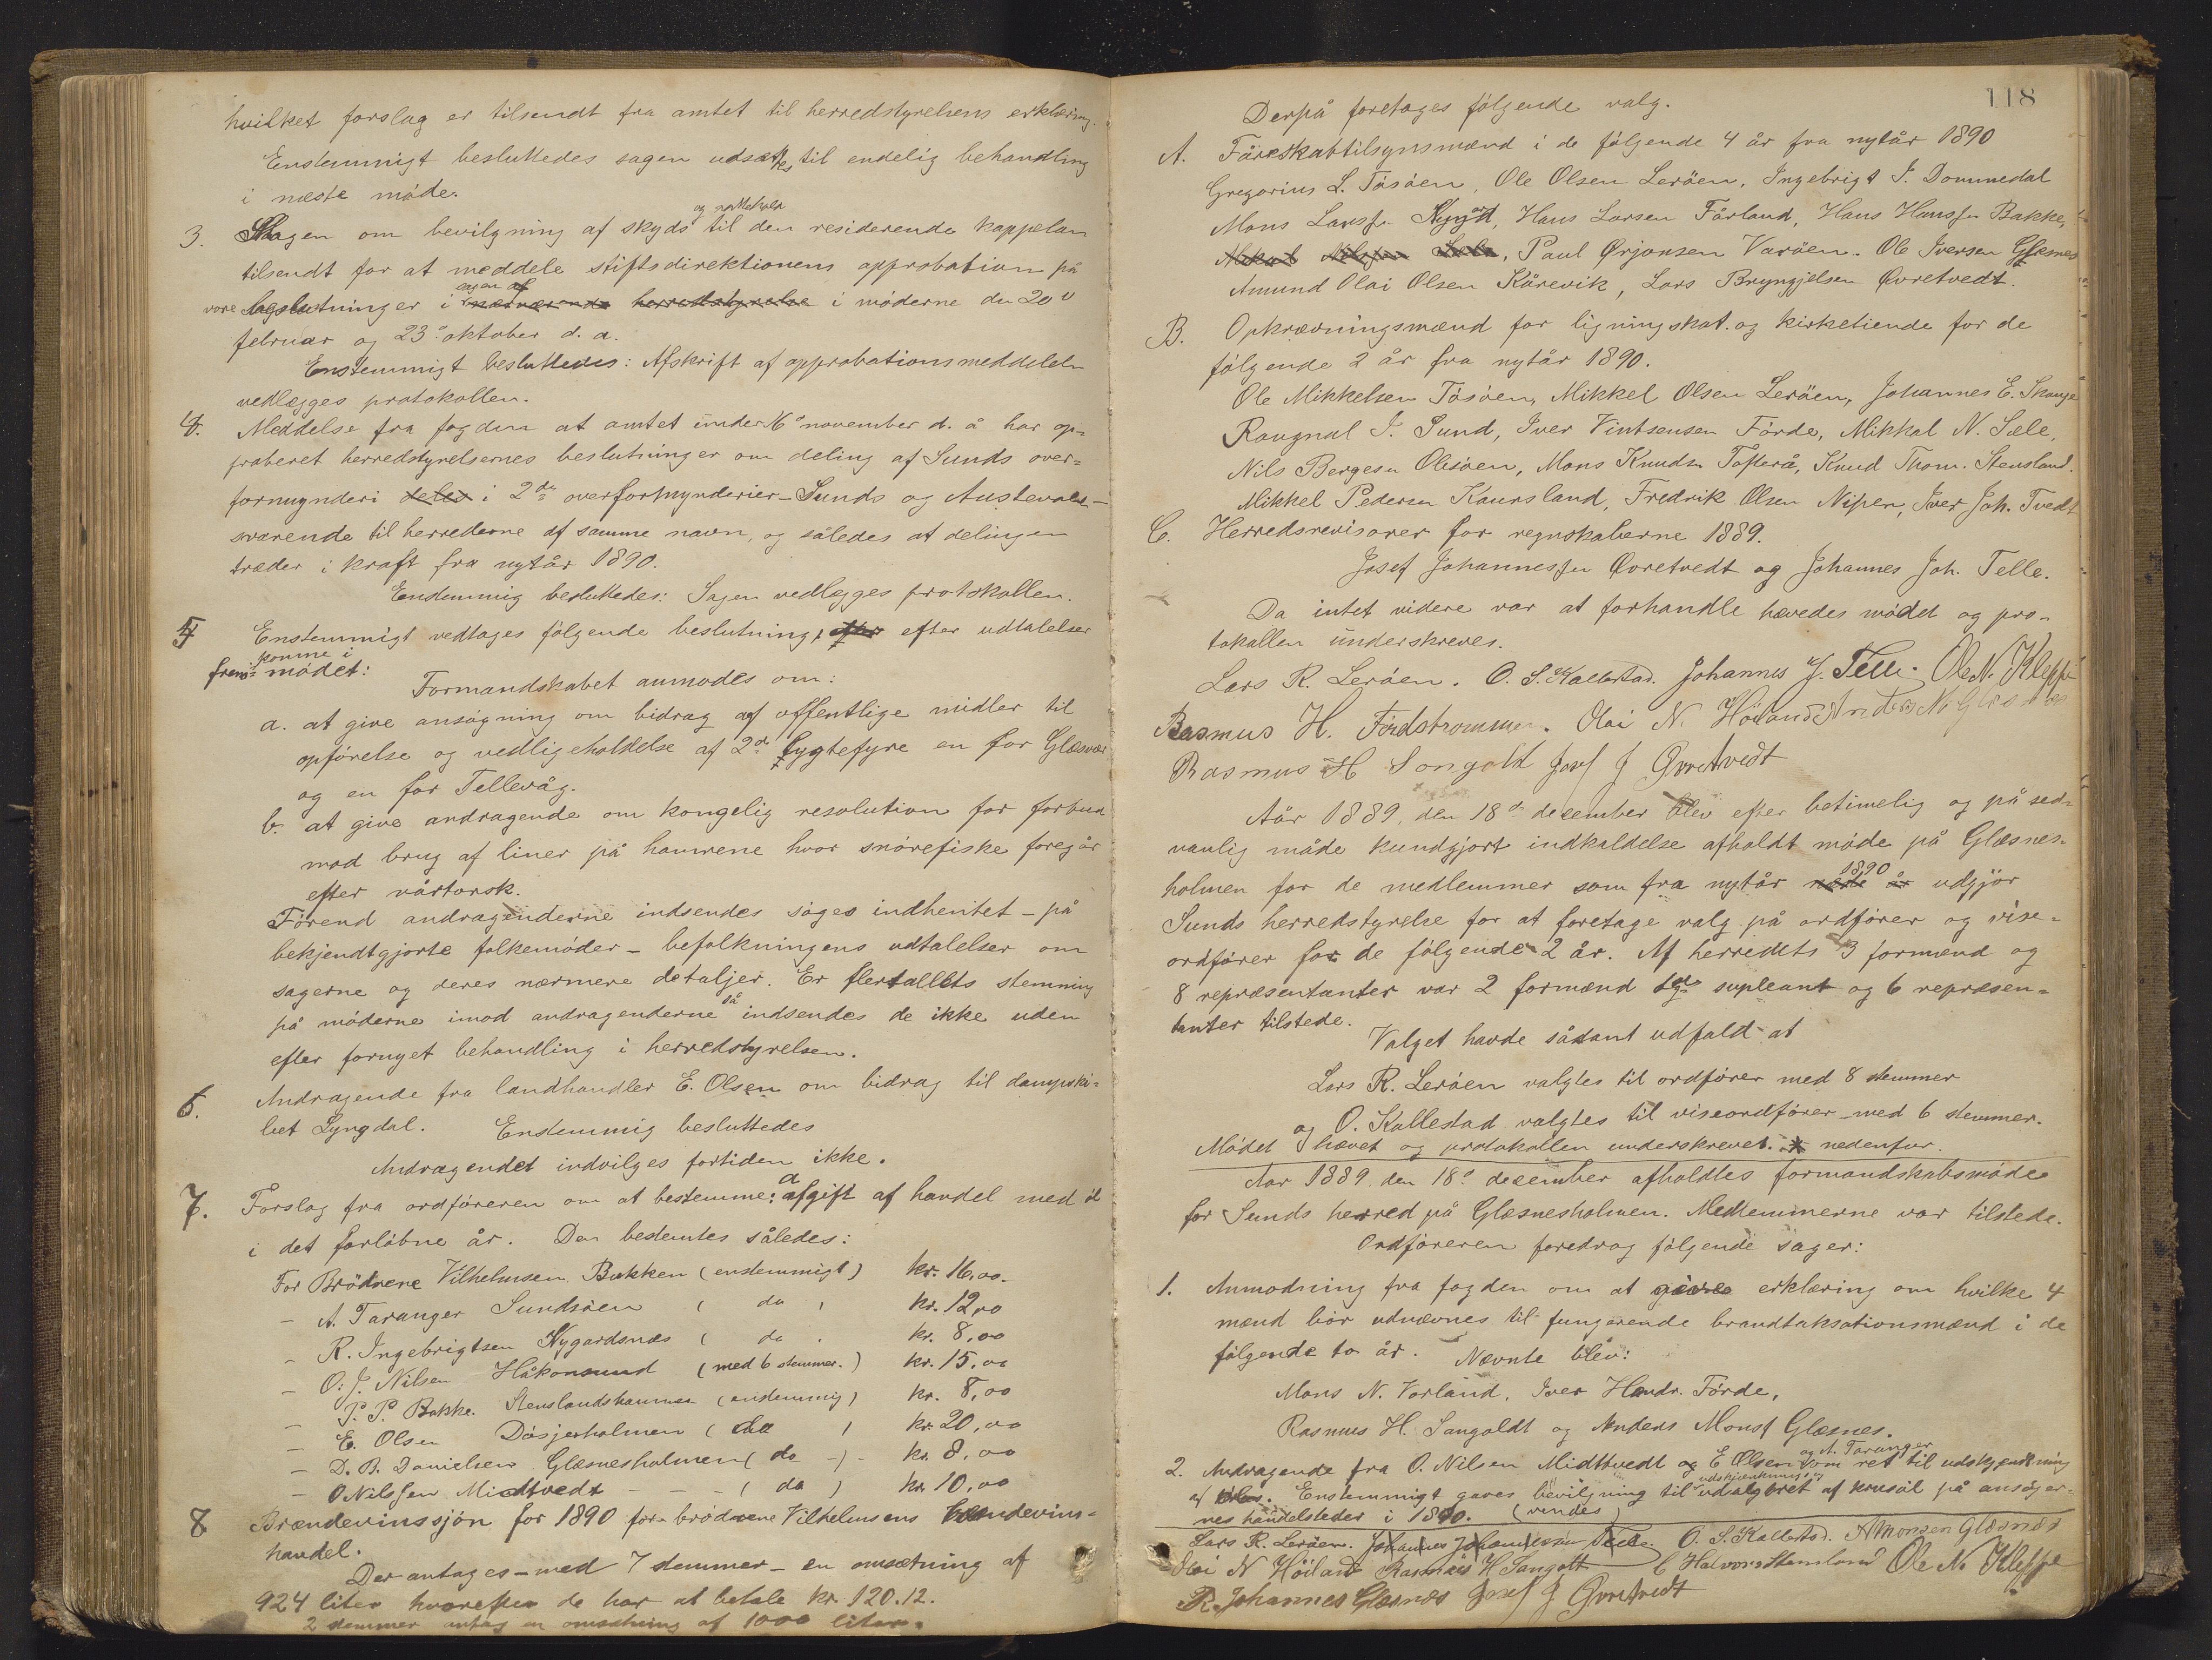 hvilket forslag er tilsendt fra amtet til herredstyrelsens erklæring.
Enstemmigt besluttedes sagen udsættes til endelig behandling
i næste møde.
3. Sagen om bevilgning af skyds og nattekvar til den residerende kappelan
tilsendt for at meddele stiftsdirektionens approbation på
vore beslutninger i sagen af nærværende herredstyrelse i møderne den 20de
februar og 23de oktober d. a.
Enstemmigt besluttedes: Afskrift af approbationsmeddelelsen
vedlægges protokollen.
4. Meddelse fra fogden at amtet under 16de november d. å har op-
proberet herredstyrelsernes beslutninger om deling af Sunds over-
formynderi deles i 2de overformynderier - Sunds og Austevolds -
svarende til herrederne af samme navn, og således at delingen
træder i kraft fra nytår 1890.
Enstemmig besluttedes: Sagen vedlægges protokollen.
5 Enstemmigt vedtages følgende beslutning, efter efter udtalelser
fremkomne i mødet:
Formandskabet anmodes om:
a. at give ansøgning om bidrag af offentlige midler til
opførelse og vedligeholdelse af 2de lygtefyre en for Glæsvær
og en for Tellevåg.
b. at give andragende om kongelig resolution for forbud
mod brug af liner på havnene hvor snørefiske foregår
efter vårtorsk.
Førend andragenderne indsendes søges indhentet - på
bekjendtgjorte folkemøder - befolkningens udtalelser om
sagerne og deres nærmere detaljer. Er flertallets stemning
på møderne imod andragenderne så indsendes de ikke uden
efter fornyet behandling i herredstyrelsen.
6. Andragende fra landhandler E. Olsen om bidrag til dampski-
bet Lyngdal. Enstemmig besluttedes
Andragendet indvilges fortiden ikke.
7. Forslag fra ordføreren om at bestemme afgift af handel med øl
i det forløbne år. Den bestemtes således:
For Brødrene Vilhelmsen Bakken (enstemmigt) kr. 16,00.
- A. Taranger Sundsøen ( do ) kr. 12,00
- R. Ingebrigtsen Nygardsnæs ( do . kr. 8,00
- O. J. Nilsen Håkonsund (med 6 stemmer.) kr. 15,00
- P. P. Bakke. Stenslandshavnen (enstemmig) kr. 8,00
- E. Olsen Døsjerholmen ( do ) kr. 20,00
- D. B. Danielsen Glæsnesholmen ( do -) - kr. 8,00
- O Nilssen Midtvedt - - - ( do ) kr. 10,00
8 Brændevinssjøn for 1890 for brødrene Vilhelmsens brændevins-
handel.
Der antages - med 7 stemmer - en omsætning af
924 liter hvorefter de har at betale kr. 120.12.
2 stemmer antog en omsætning af 1000 liter.
118
Derpå foretages følgende valg.
A. Fåreskabtilsynsmænd i de følgende 4 år fra nytår 1890
Gregorius L. Tøsøen, Ole Olsen Lerøen, Ingebrigt J. Dommedal
Mons Larssen Nygård, Hans Larsen Fårland, Hans Hanssen Bakke,
Mikal Nilssen Sele, Paul Ørjansen Varøen. Ole Iversen Glæsnes
Amund Olai Olsen Kårevik, Lars Bryngjelsen Øvretvedt.
B. Opkrævningsmænd for ligningskat. og kirketiende for de
følgende 2 år fra nytår 1890.
Ole Mikkelsen Tøsøen, Mikkel Olsen Lerøen, Johannes E. Skauge
Raugnal J. Sund, Iver Vintsensen Førde, Mikkal N. Sele,
Nils Bergesen Olesøen, Mons Knudsen Tofterå, Knud Thom. Stensland.
Mikkel Pedersen Kaursland, Fredrik Olsen Nipen, Iver Joh. Tvedt
C. Herredsrevisorer for regnskaberne 1889.
Josef Johannessen Øvretvedt og Johannes Joh. Telle.
Da intet videre var at forhandle hævedes mødet og pro-
tokollen underskreves.
Lars R. Lerøen. O. S. Kallestad. Johannes J. Telle. Ole N. Kleppe
Rasmus H. Førdstrommen. Olai N. Høiland Anders M Glæsnes
Rasmus H Sangolt Josef J Øvretvedt
Aår 1889, den 18de december blev efter betimelig og på sed-
vanlig måde kundgjort indkaldelse afholdt møde på Glæsnes-
holmen for de medlemmer som fra nytår næste år 1890 udgjør
Sunds herredstyrelse for at foretage valg på ordfører og vise-
ordfører for de følgende 2 år. Af herredets 3 formænd og
8 repræsentanter var 2 formænd og supleant og 6 repræsen-
tanter tilstede.
Valget havde sådant udfald at
Lars R. Lerøen valgtes til ordfører med 8 stemmer
og O. Kallestad valgtes til viseordfører med 6 stemmer.
Mødet hævet og protokollen underskrevet. nedenfor.
Aar 1889 den 18de december afholdtes formandskabsmøde
for Sunds herred på Glæsnesholmen. Medlemmerne var tilstede.
Ordføreren foredrog følgende sager:
1. Anmodning fra fogden om at give erklæring om hvilke 4
mænd bør udnævnes til fungerende brandtaksationsmænd i de
følgende to år. Nævnte blev:
Mons N. Vorland, Iver Hendr. Førde,
Rasmus H. Sangoldt og Anders Monss Glæsnes.
2. Andragende fra O. Nilsen Midttvedt og E Olsen og A. Taranger om ret til udskjenkning
af øl. Enstemmigt gaves bevilgning til udskjenkning og udsalgsret af korsøl på ansøger-
nes handelsteder i 1890. (vendes)
Lars R. Lerøen. Johannes Johannessen Telle. O. S. Kallestad. A Monsen Glæsnes
Olai N Høiland Rasmus H Sangolt C Halvors Hamland Ole N. Kleppe
R. Johannes Glæsnes Josef J Øvretvedt